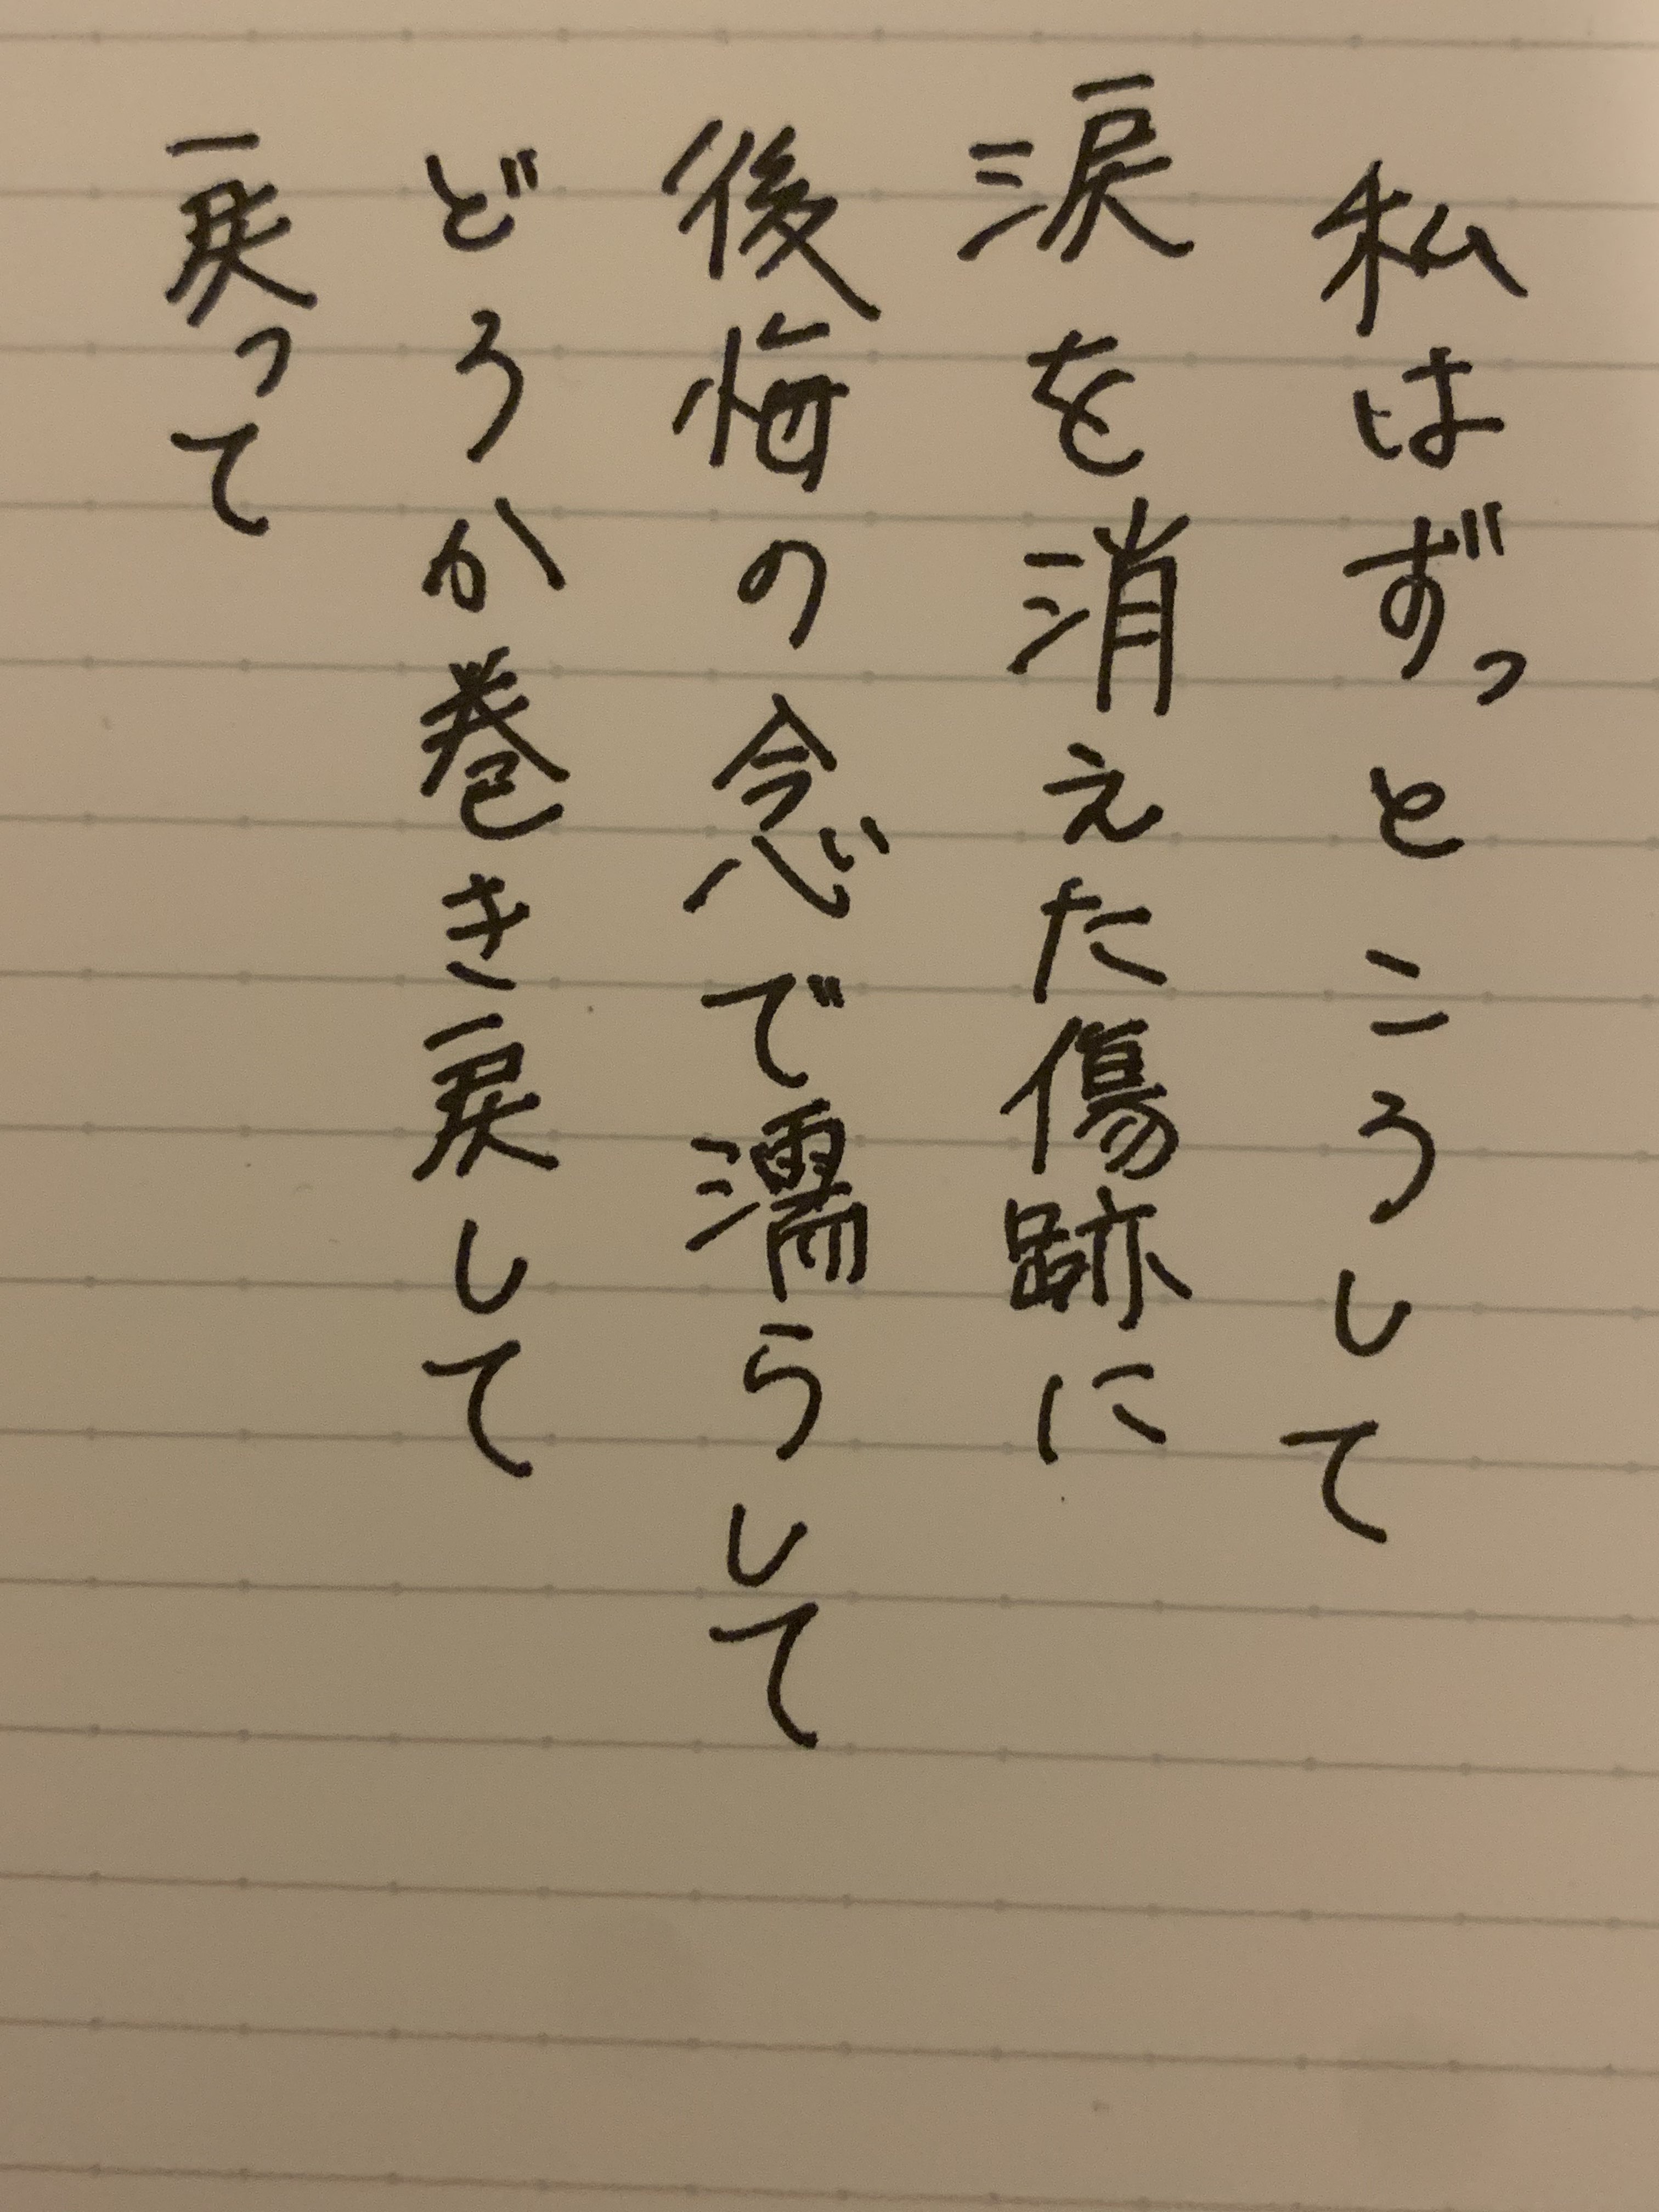 私はずっとこうして
涙を消えた傷跡に
後悔の念で濡らして
どうか巻き戻して
戻って